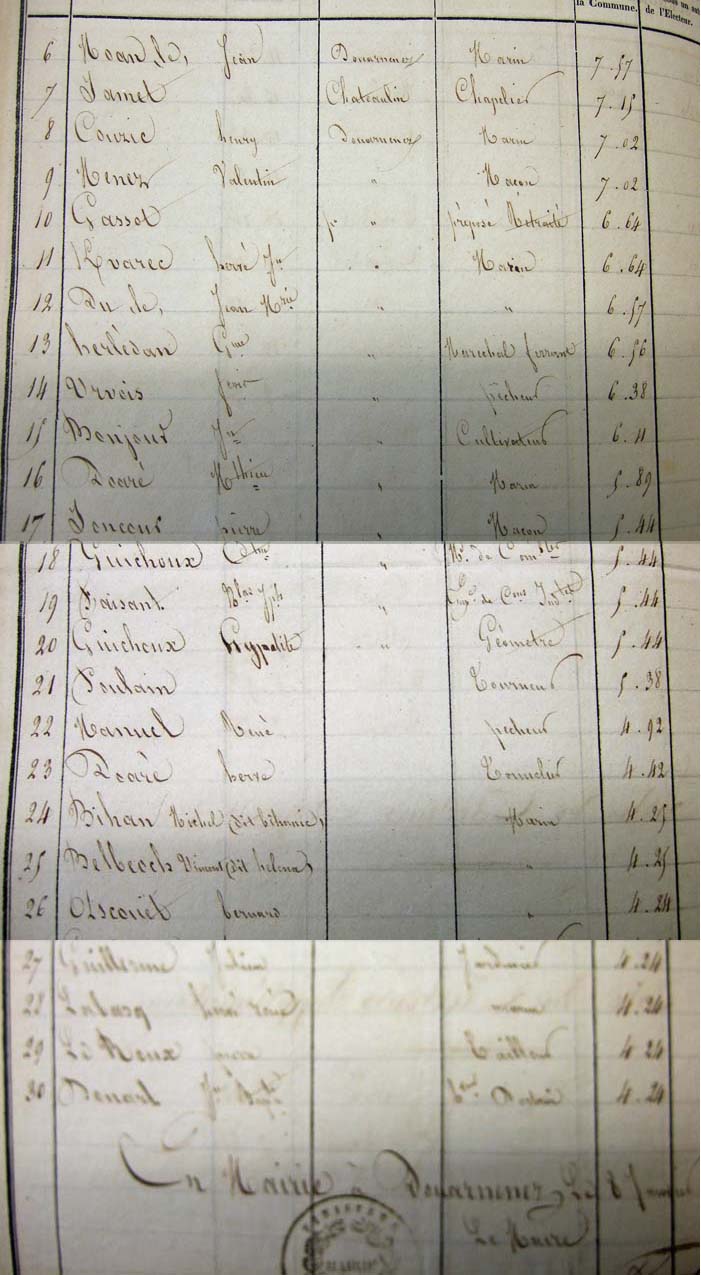 la Commune. de l'Electeur.
6 Moan, le, Jean Douarnenez Marin 7.57
7 Jamet Chateaulin Chapelier 7.15
8 Couzic henry Douarnenez Marin 7.02
9 Menez Valentin " Maçon 7.02
10 Gasset " préposé Retraité 6.64
11 Kvarec hervé Jn " Marin 6.64
12 Du le, Jean Mrie " " 6.57
13 herlédan Gme " Marechal ferrant 6.56
14 Urvois " pêcheur 6.38
15 Bonjour Jn " Cultivateur 6.11
16 Doaré Mthieu " Marin 5.89
17 Joncour pierre " Maçon 5.44
18 Guichoux " 5.44
19 Paisant " 5.44
20 Guichoux hyppolite " Géometre 5.44
21 Poulain Tourneur 5.38
22 Manuel René pêcheur 4.92
23 Doaré herve Tonnelier 4.42
24 Bihan Michel (dit Marin 4.25
25 Belbeoch Vincent (dit helena) " 4.25
26 Ascouët bernard " 4.24
27 Guillerme Julien Jardinier 4.24
28 Labasq marin 4.24
29 Le Roux Tailleur 4.24
30 Benard Jn Bapte 4.24
En Mairie à Douarnenez, Le 8
Le Maire